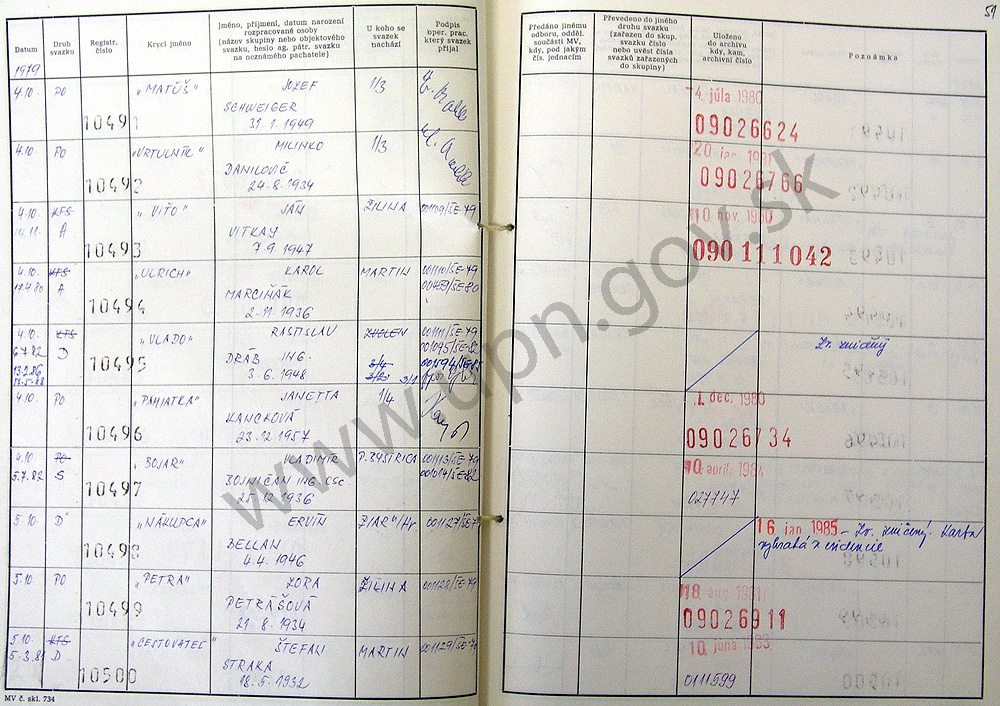 51
Datum
Druh svazku
Registr. číslo
Krycí jméno
Jméno, příjmení, datum narození
rozpracované osoby
(název skupiny nebo objektového
svazku, heslo ag. pátr. svazku
na neznámého pachatele)
U koho se
svazek
nachází
Podpis
oper. prac.
který svazek
přijal
Předáno jinému
odboru, odděl.
součásti MV,
kdy, pod jakým
čís. jednacím
Převedeno do jiného
druhu svazku
(zařazen do skup.
svazku číslo
nebo uvést čísla
svazků zařazených
do skupiny)
Uloženo
do archivu
kdy, kam,
archivní číslo
Poznámka
1979
4.10. PO „MATÚŠ" JOZEF 1/3
10491 SCHWEIGER
31 1. 1949
4. júla 1980
09026624
4.10. PO „VRTULNÍK" MILINKO 1/3
10492 DANILOVIČ
24.8.1934
20 jan 1981
09026766
4.10. KTS „VIŤO" JÁN ŽILINA 001109/ŠE-79
14.11. A VITKAY
10493 7.9.1947
10 nov. 1980
090 111 042
4.10. KTS „ULRICH" KAROL MARTIN 001110/ŠE-79
A MARCIŇÁK
10494 2.11.1936
4.10. KTS „VLADO" RASTISLAV ZVOLEN 001111/ŠE-79
6.7.82 D 001095/ŠE-82
10495 DRÁB ING. 3/4
3.6.1948
Zv. zničený
4.10. PO „PAMIATKA" JANETTA 1/4
10496 KANCKOVÁ
23.12.1957
1. dec. 1980
09026734
4.10. PO „BOJAR" VLADIMÍR P. BYSTRICA 001113/ŠE-79
5.7.82 S BOJNIČAN ING. CSc. 001014/ŠE-82
10497 25.12.1936
10. apríla 1984
027747
5.10. D „NÁKUPCA" ERVÍN ŽIAR n/Hr. 001127/ŠE-7
10498 BELLAN
4.4.1946
16 jan 1985 – Zv. zničený. Karta
vybratá z evidencie
5.10. PO „PETRA" ZORA ŽILINA 001128/ŠE-79
10499 PETRÁŠOVÁ
21.8.1934
18 aug 1981
09026911
5.10. KTS „CESTOVATEĽ" ŠTEFAN MARTIN 001129/ŠE-79
D. STRAKA
10500 18.5.1932
10. júna 1983
0111599
MV č. skl. 734
www.upn.gov.sk